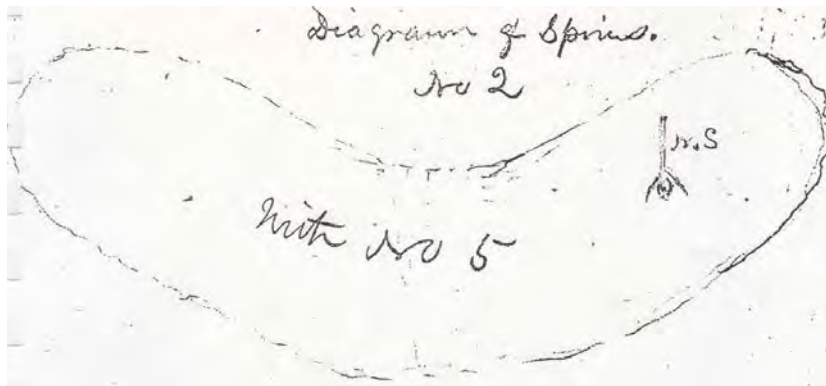 Diagram of Spines.
No 2
N.S
With No 5